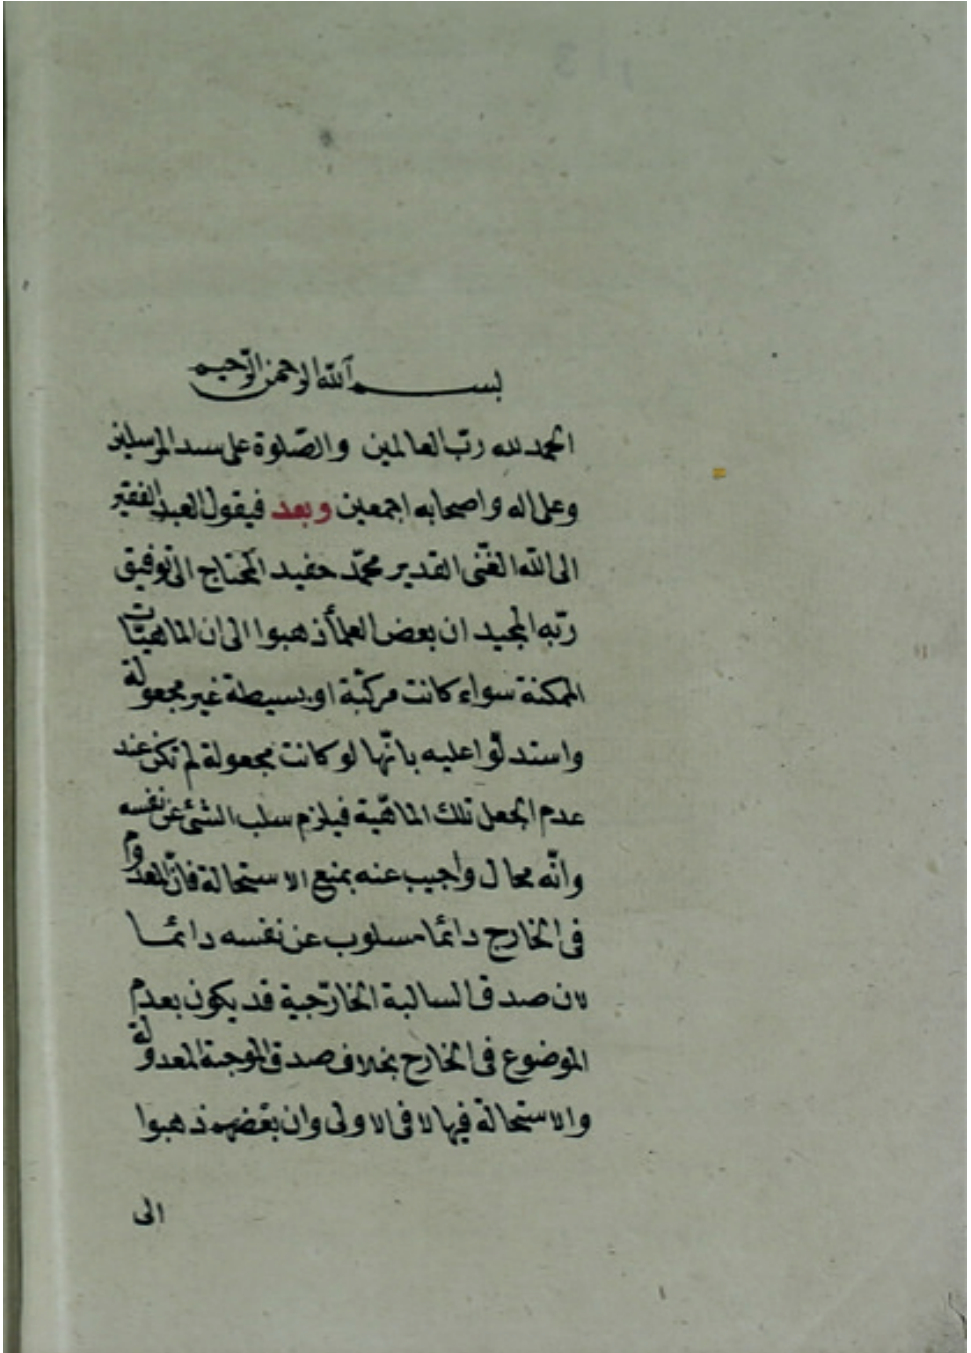 بسم الله الرحمن الرحيم
الحمد لله رب العالمين والصلوة على سيد المرسلين
وعلى اله واصحابه اجمعين وبعد فيقول العبد الفقير
الى الله الغنى القدير محمد حفيد المحتاج الى توفيق
ربه المجيد ان بعض العلمأ ذهبوا الى ان الماهيّات
الممكنة سواء كانت مركبة او بسيطة غير مجعولة
واستدلّوا عليه بانّها لو كانت مجعولة لم تكن عند
عدم الجعل تلك الماهيّة فيلزم سلب الشئ عن نفسه
وانّه محال واجيب عنه بمنع الاستحالة فانّ المعدوم
فى الخارج دائما مسلوب عن نفسه دائما
لان صدق السالبة الخارجية قد يكون بعدم
الموضوع فى الخارج بخلاف صدق الموجبة المعدولة
والاستحالة فيها لا فى الاولى وان بعضهم ذهبوا
الى